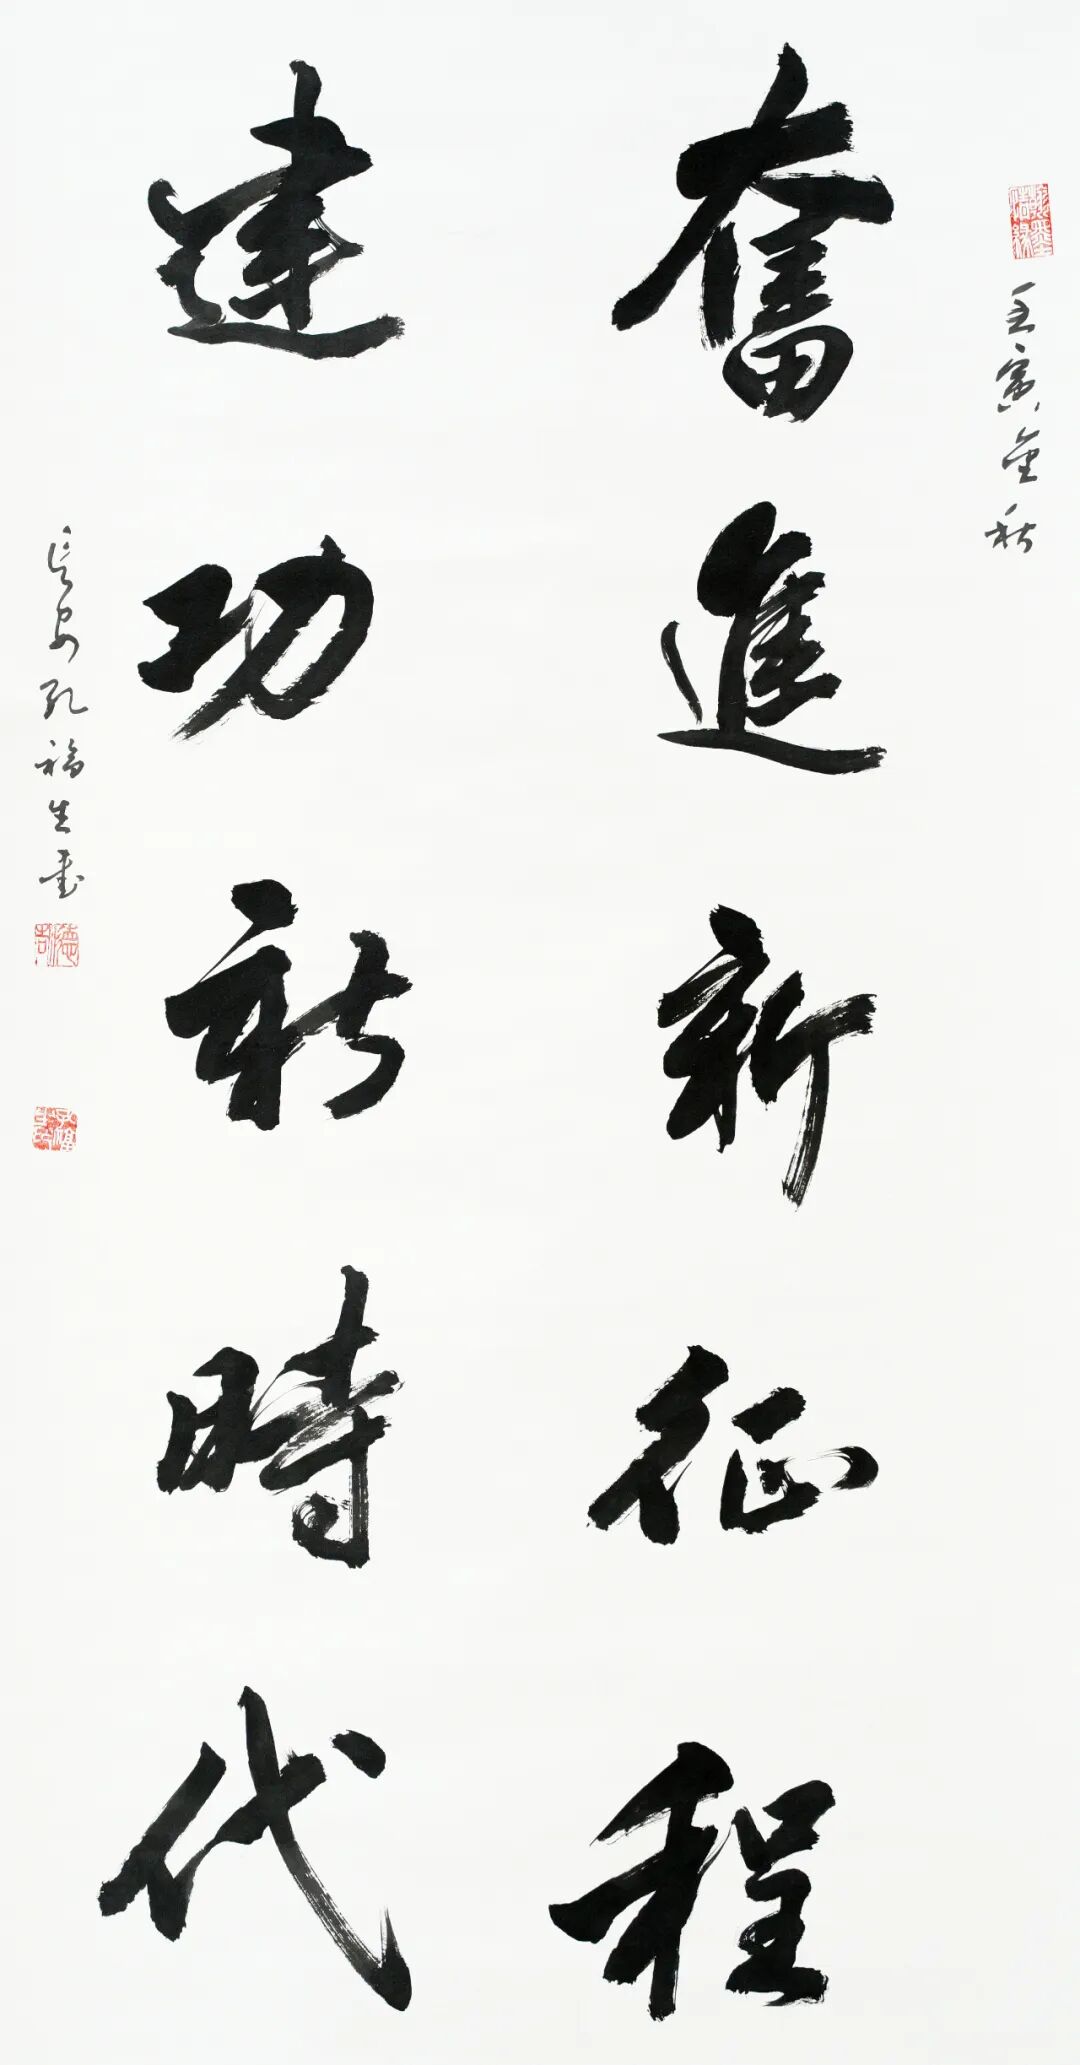 壬寅金秋
奮進新征程
建功新時代
長安孔福生書